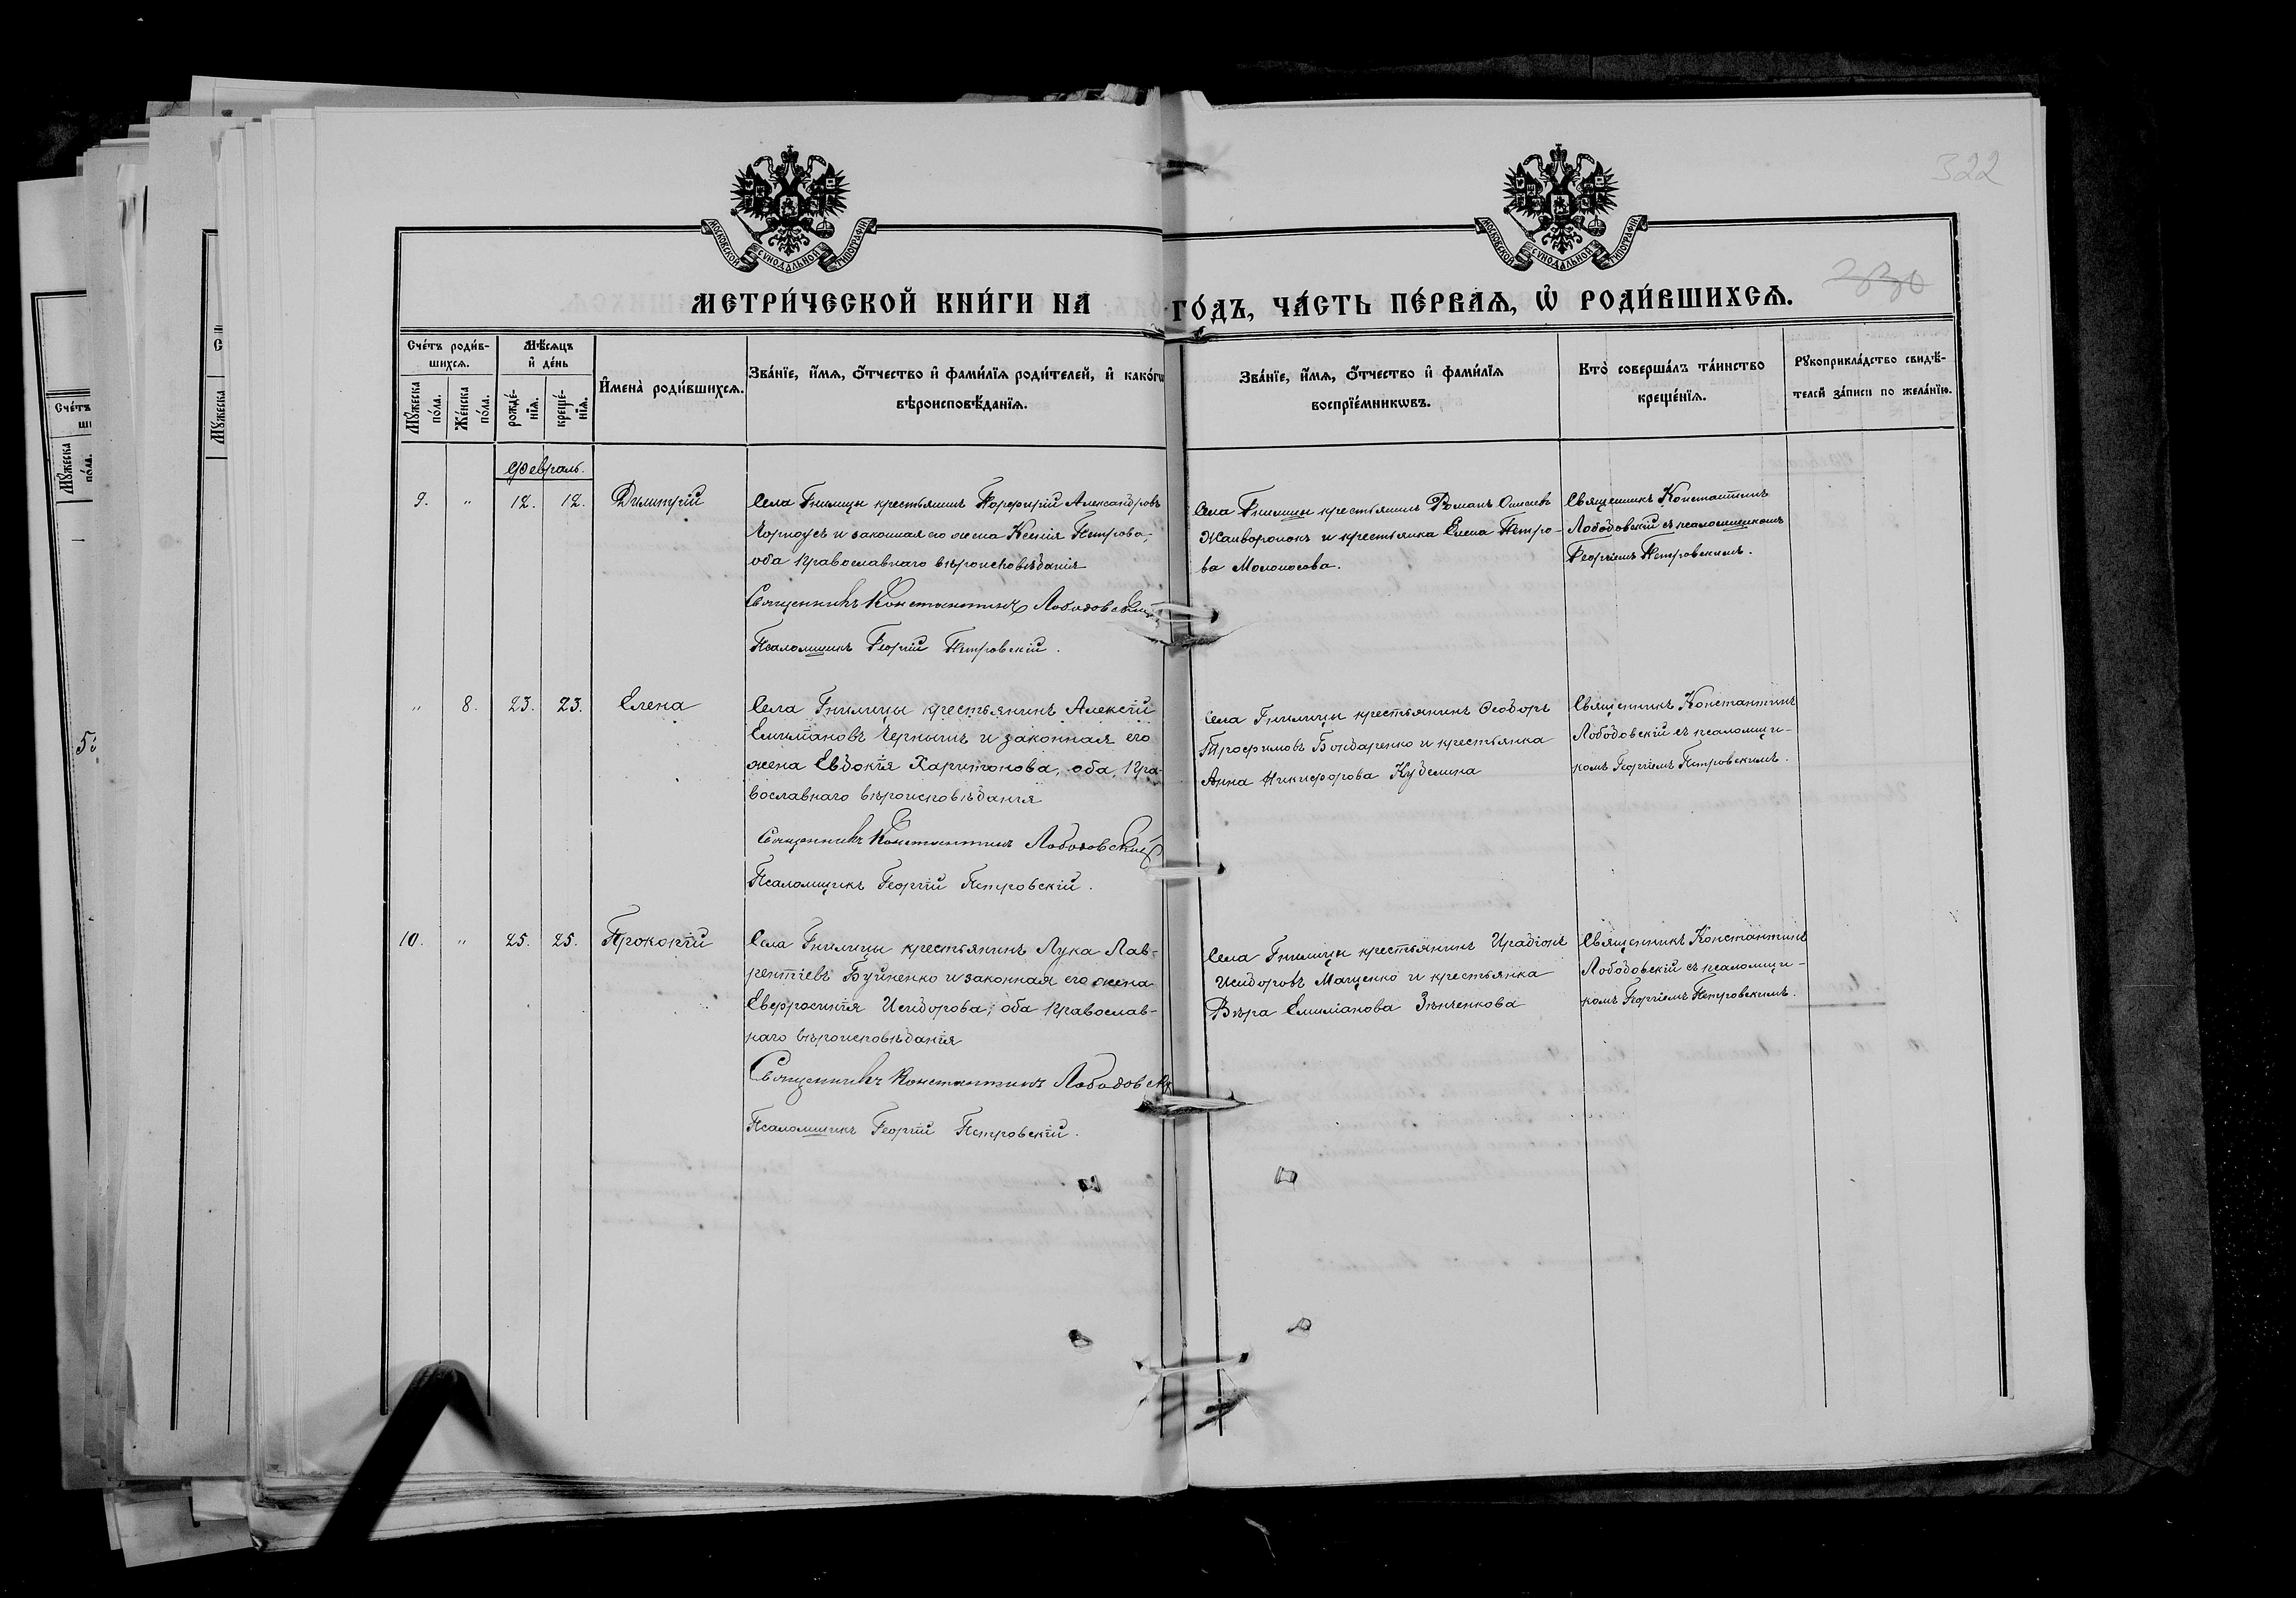 322
МОСКОВСКОЙ СУНОДАЛЬНОЙ ТИПОГРАФІИ
МОСКОВСКОЙ СУНОДАЛЬНОЙ ТИПОГРАФІИ
МЕТРИ́ЧЕСКОЙ КНИ́ГИ НА ГО́ДЪ, ЧА́СТЬ ПЕ́РВАѦ, Ѡ҆ РОДИ́ВШИХСѦ.
Сче́тъ роди́в-
шихсѧ.
Мꙋжеска по́ла.
Же́нска по́ла.
Мѣ́сѧцъ
и҆ де́нь
рожде́-
нїѧ.
креще́-
нїѧ.
И҆мена̀ роди́вшихсѧ.
Зва́нїе, и҆́мѧ, ѻ҆́тчество и҆ фами́лїѧ роди́телей, и҆ како́гѡ
вѣроисповѣ́данїѧ.
Зва́нїе, и҆́мѧ, ѻ҆́тчество и҆ фами́лїѧ
воспрїе́мникѡвъ.
Кто̀ соверша́лъ та́инство
креще́нїѧ.
Рꙋкоприкла́дство свидѣ́-
телей за́писи по жела́нїю.
Февраль.
9. " 12. 12. Димитрій
Села Гнилицы крестьянинъ Порфирій Александровъ
и законная его жена Ксенія Петрова,
оба православнаго вѣроисповѣданія
Священникъ Константинъ Лободовскій
Псаломщикъ Георгій Петровскій.
Села Гнилицы крестьянинъ Романъ
Жаворонокъ и крестьянка Елена Петро-
ва
Священникъ Константинъ
Лободовскій съ псаломщикомъ
Георгіемъ Петровскимъ.
" 8. 23. 23. Елена
Села Гнилицы крестьянинъ Алексій
Емиліановъ и законная его
жена Евдокія Харитонова, оба пра-
вославнаго вѣроисповѣданія
Священникъ Константинъ Лободовскій
Псаломщикъ Георгій Петровскій.
Села Гнилицы крестьянинъ Ѳеодоръ
Трофимовъ Бондаренко и крестьянка
Анна Никифорова Куделина
Священникъ Константинъ
Лободовскій съ псаломщи-
комъ Георгіемъ Петровскимъ.
10. " 25. 25. Прокопій
Села Гнилицы крестьянинъ Лука Лав-
рентіевъ и законная его жена
Евфросинія Исидорова, оба православ-
наго вѣроисповѣданія
Священникъ Константинъ Лободовскій
Псаломщикъ Георгій Петровскій.
Села Гнилицы крестьянинъ Иродіонъ
Исидоровъ Маценко и крестьянка
Вѣра Емиліанова Зѣнченкова
Священникъ Константинъ
Лободовскій съ псаломщи-
комъ Георгіемъ Петровскимъ.